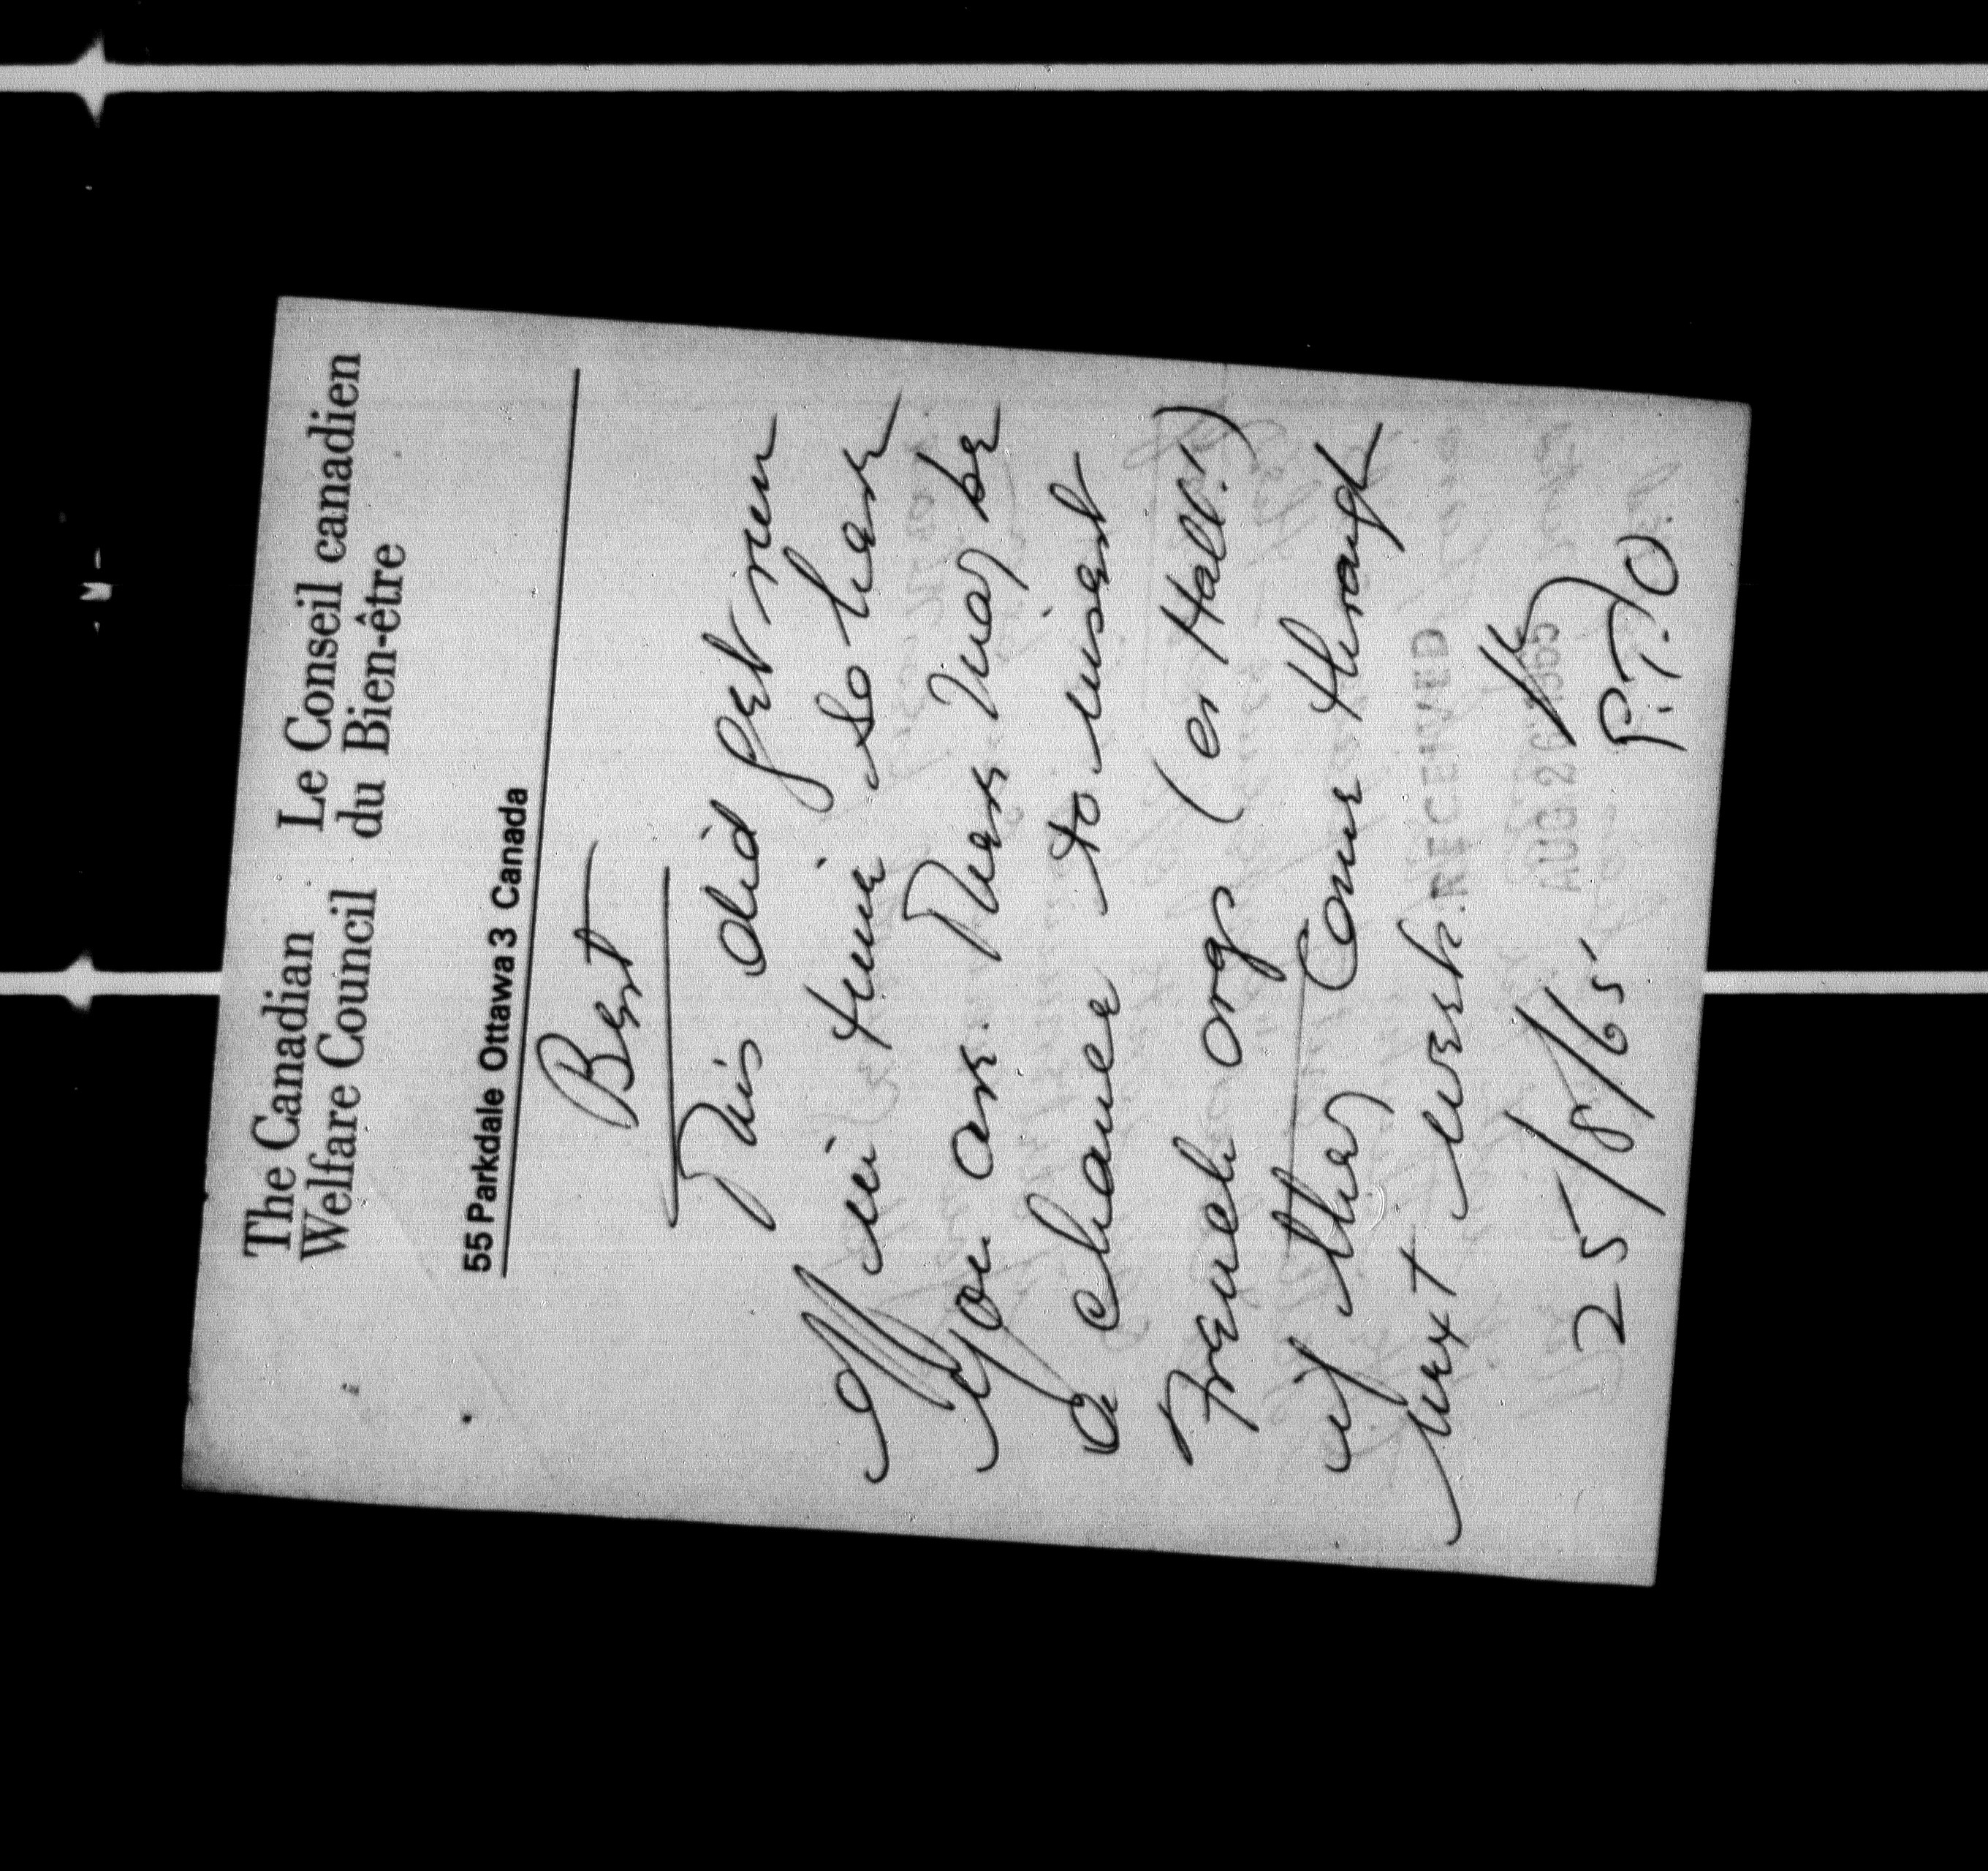 The Canadian Welfare Council
Le Conseil canadien du Bien-être
55 Parkdale Ottawa 3 Canada
Bert
This did get run
off in time so here
you are. There may be
a chance to insert
French org (or Hall!)
if they come through
next week.
RECEIVED
AUG 26 1965
25/8/65
P.T.O